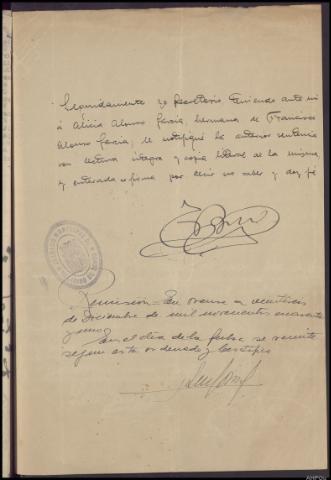 Seguidamente yo Secretario teniendo ante mi
á Alicia Alonso García, hermana de Francisco
Alonso García; le notifiqué la anterior sentencia
con lectura íntegra y copia literal de la misma,
y enterada firma por decir no saber y doy fé
Remisión. En Orense a veintiseis
de Diciembre de mil novecientos cuarenta
y uno
en el día de la fecha se remite
según está ordenado y certifico